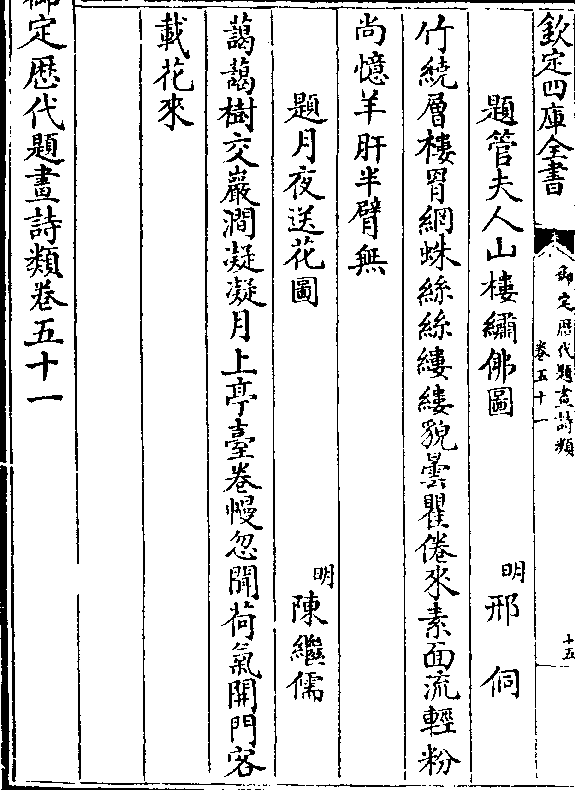 欽定四庫全書
御定歷代題畫詩類
卷五十一
十五
題管夫人山樓繡佛圖
明邢侗
竹繞層樓罥網蛛絲絲縷縷貌曇瞿倦來素面流輕粉
尚憶羊肝半臂無
題月夜送花圖
明陳繼儒
藹藹樹交巖澗凝凝月上亭臺卷幔忽聞荷氣開門客
載花來
御定歷代題畫詩類卷五十一